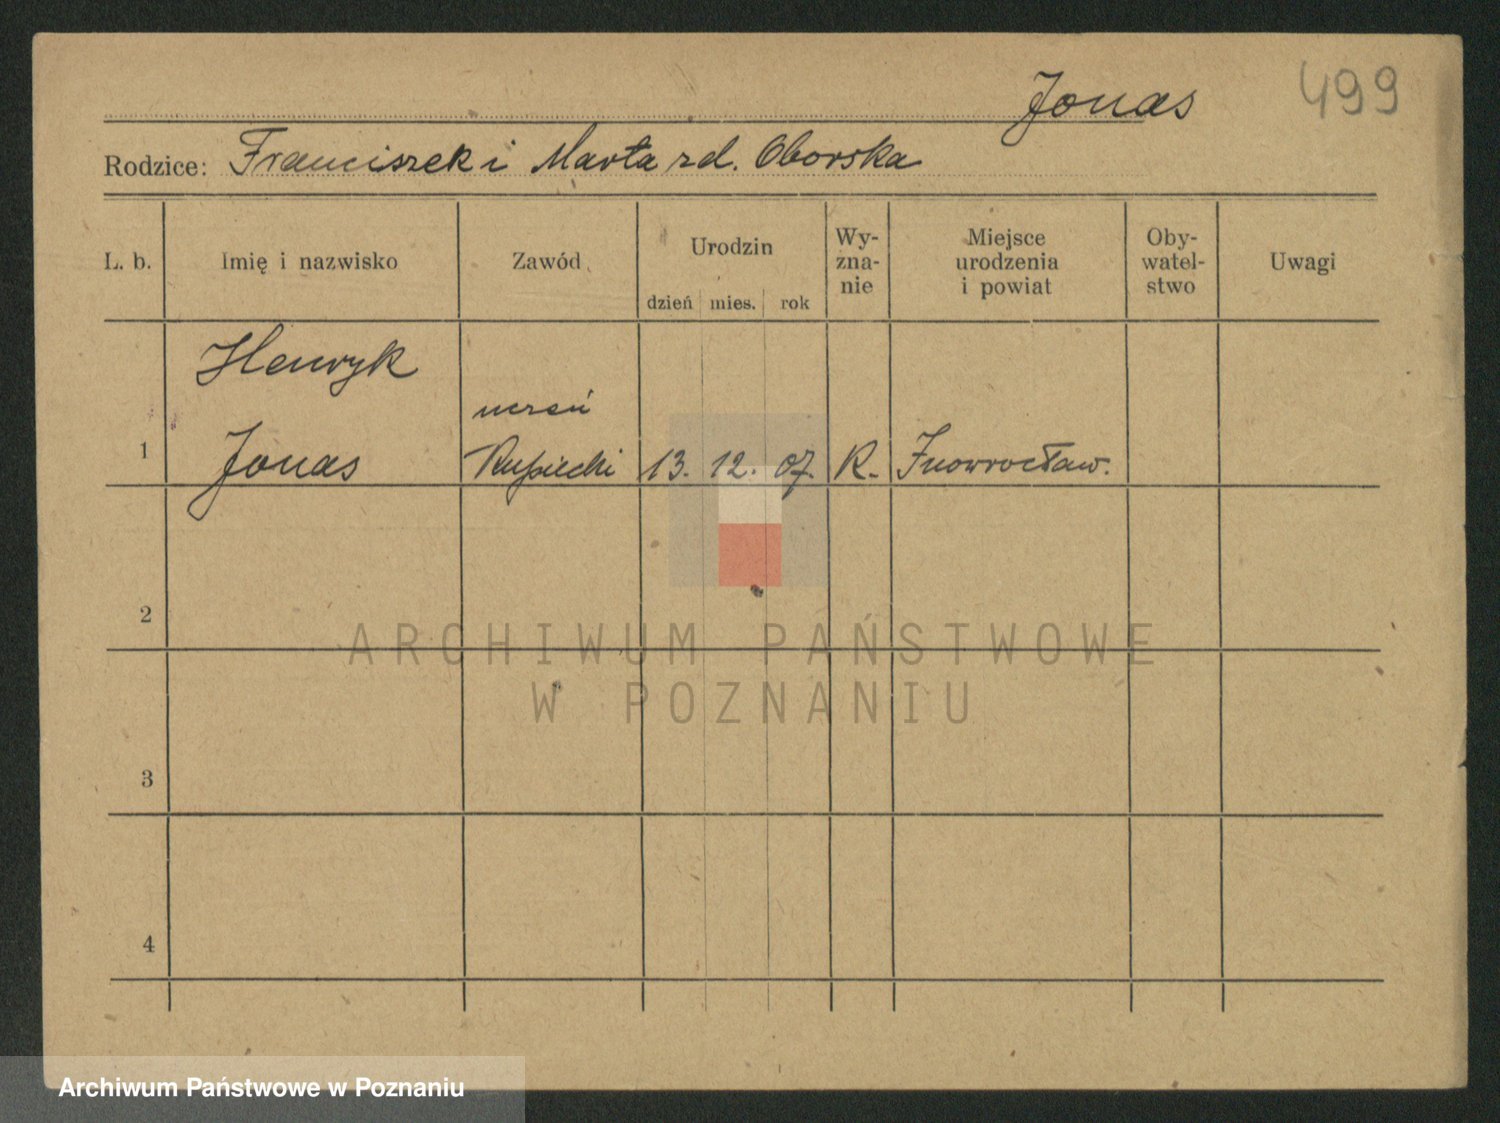 Jonas 499
Rodzice: Franciszek i Marta zd. Oborska
L. b. Imię i nazwisko Zawód Urodzin Wy- Miejsce Oby- Uwagi
zna- urodzenia watel-
dzień mies. rok nie i powiat stwo
Henryk
uczeń
1 Jonas Kupiecki 13. 12. 07. R. Inowrocław.
2
ARCHIWUM PAŃSTWOWE
W POZNANIU
3
4
Archiwum Państwowe w Poznaniu